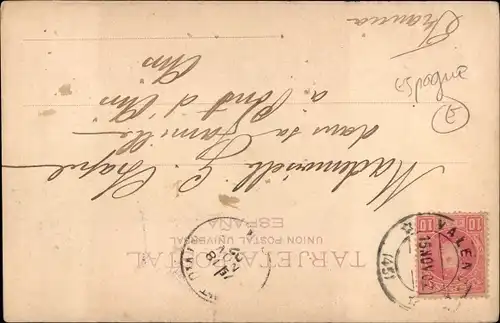 TARJETA POSTAL
UNION POSTAL UNIVERSAL
ESPAÑA
Mademoiselle G. Chapel
dans sa Famille
à Pont d'Ain
Ain
France
10 10
VALEN
15 NOV 02
(45)
18
NOV
02